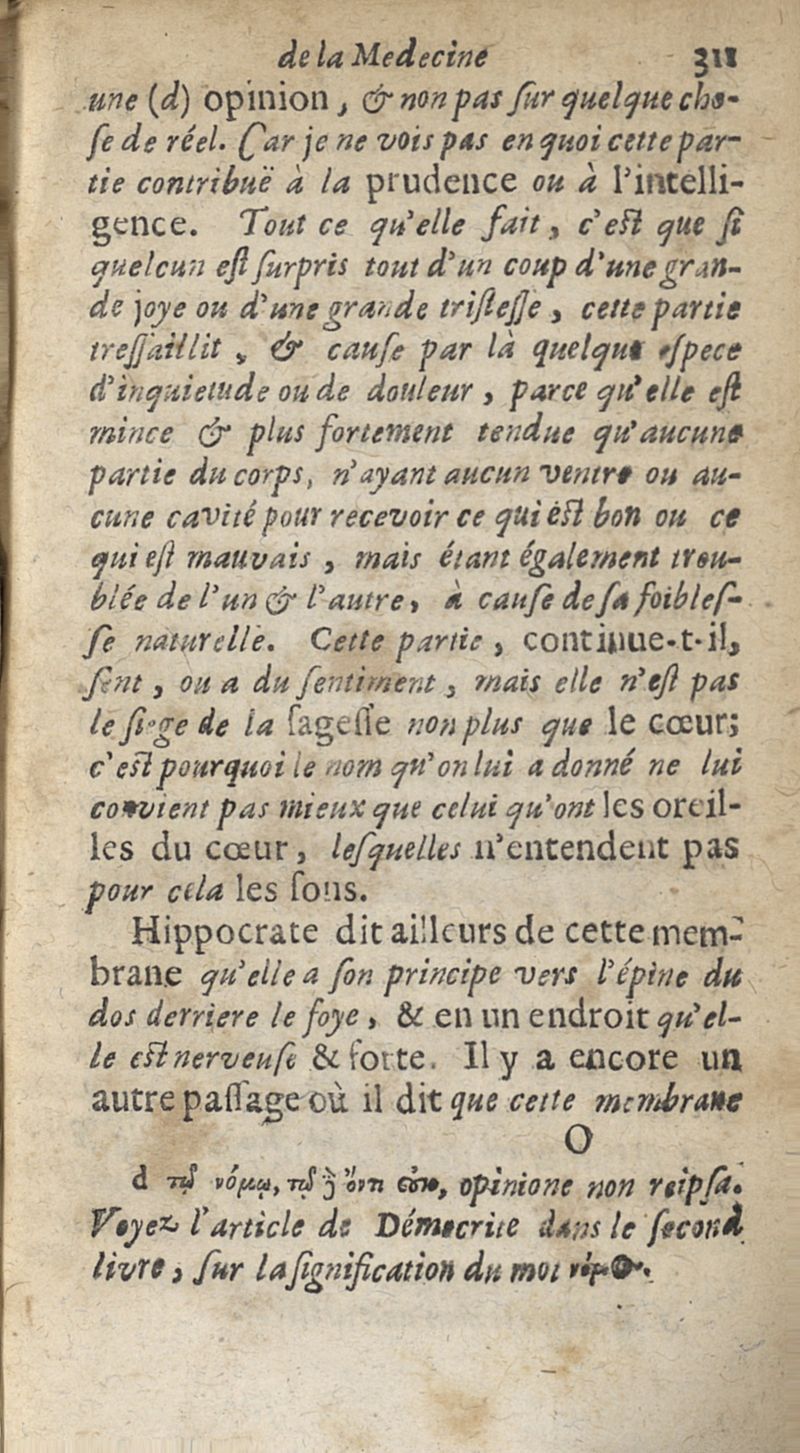 de la Medecine 311
une (d) opinion, & non pas ſur quelque cho-
ſe de réel. Car je ne vois pas en quoi cette par-
tie contribuë à la prudence ou à l'intelli-
gence. Tout ce qu'elle fait, c'eſt que ſi
quelcun eſt ſurpris tout d'un coup d'une gran-
de joye ou d'une grande triſteſſe, cette partie
treſſaillit, & cauſe par là quelque eſpece
d'inquietude ou de douleur, parce qu'elle eſt
mince & plus fortement tendue qu'aucune
partie du corps, n'ayant aucun ventre ou au-
cune cavité pour recevoir ce qui eſt bon ou ce
qui eſt mauvais, mais étant également trou-
blée de l'un & l'autre, à cauſe de ſa foibleſ-
ſe naturelle. Cette partie, continue-t-il,
ſent, ou a du ſentiment, mais elle n'eſt pas
le ſiege de la ſageſſe non plus que le cœur;
c'eſt pourquoi le nom qu'on lui a donné ne lui
convient pas mieux que celui qu'ont les oreil-
les du cœur, leſquelles n'entendent pas
pour cela les ſons.
Hippocrate dit ailleurs de cette mem-
brane qu'elle a ſon principe vers l'épine du
dos derriere le foye, & en un endroit qu'el-
le eſt nerveuſe & forte. Il y a encore un
autre paſſage où il dit que cette membrane
O
d τῷ νόμῳ, τῷ ὄντι opinione non reipſa.
Voyez l'article de Démocrite dans le ſecond
livre, ſur la ſignification du mot νόμος.